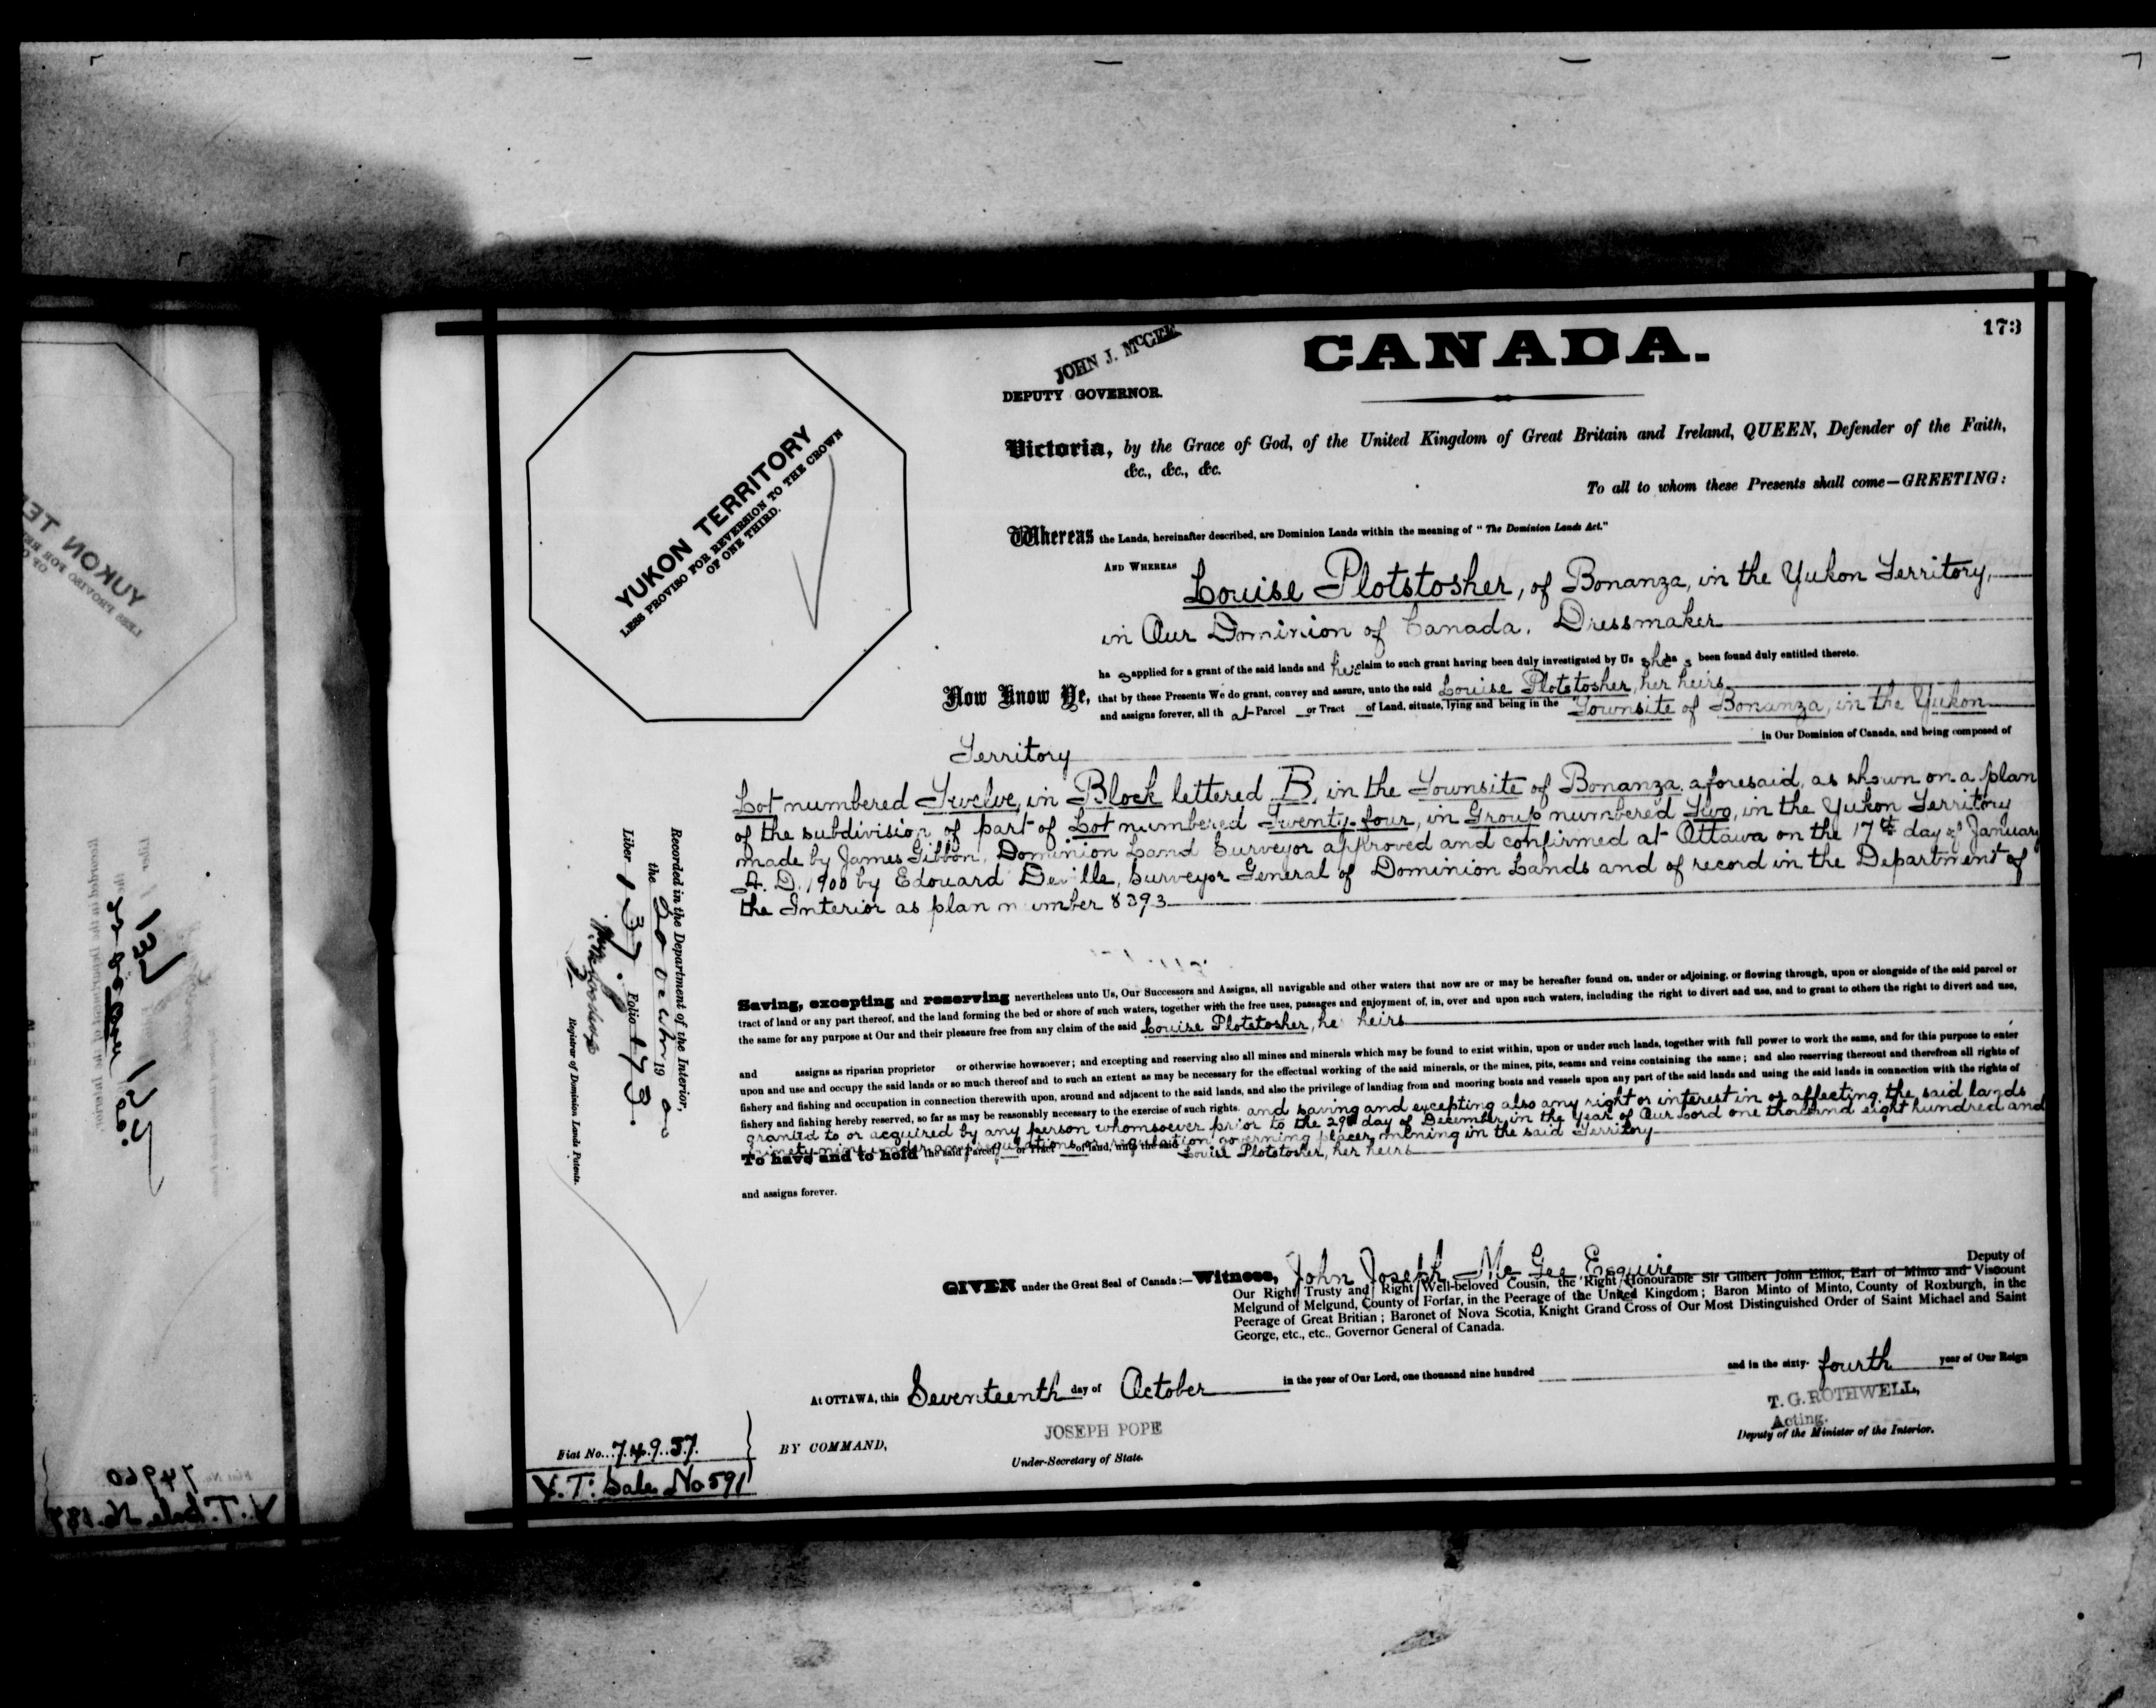 173
JOHN J. McGEE
DEPUTY GOVERNOR.
CANADA.
Victoria, by the Grace of God, of the United Kingdom of Great Britain and Ireland, QUEEN, Defender of the Faith,
&c., &c., &c.
To all to whom these Presents shall come—GREETING:
YUKON TERRITORY
LESS PROVISO FOR REVERSION TO THE CROWN
OF ONE THIRD.
Whereas the Lands, hereinafter described, are Dominion Lands within the meaning of "The Dominion Lands Act."
AND WHEREAS Louise Plotstosher, of Bonanza, in the Yukon Territory,
in Our Dominion of Canada, Dressmaker
ha s applied for a grant of the said lands and her claim to such grant having been duly investigated by Us she ha s been found duly entitled thereto.
Now Know Ye, that by these Presents We do grant, convey and assure, unto the said Louise Plotstosher, her heirs
and assigns forever, all th at Parcel or Tract of Land, situate, lying and being in the Townsite of Bonanza, in the Yukon
Territory in Our Dominion of Canada, and being composed of
Lot numbered Twelve, in Block lettered B, in the Townsite of Bonanza aforesaid, as shown on a plan
of the subdivision of part of Lot numbered Twenty-four, in Group numbered Two, in the Yukon Territory
made by James Gibbon, Dominion Land Surveyor approved and confirmed at Ottawa on the 17th day of January
A. D. 1900 by Edouard Deville, Surveyor General of Dominion Lands and of record in the Department of
the Interior as plan number 8393
Recorded in the Department of the Interior,
the 19
Liber 137. Folio 173.
Registrar of Dominion Lands Patents.
Saving, excepting and reserving nevertheless unto Us, Our Successors and Assigns, all navigable and other waters that now are or may be hereafter found on, under or adjoining, or flowing through, upon or alongside of the said parcel or
tract of land or any part thereof, and the land forming the bed or shore of such waters, together with the free uses, passages and enjoyment of, in, over and upon such waters, including the right to divert and use, and to grant to others the right to divert and use,
the same for any purpose at Our and their pleasure free from any claim of the said Louise Plotstosher, he heirs
and assigns as riparian proprietor or otherwise howsoever; and excepting and reserving also all mines and minerals which may be found to exist within, upon or under such lands, together with full power to work the same, and for this purpose to enter
upon and use and occupy the said lands or so much thereof and to such an extent as may be necessary for the effectual working of the said minerals, or the mines, pits, seams and veins containing the same; and also reserving thereout and therefrom all rights of
fishery and fishing and occupation in connection therewith upon, around and adjacent to the said lands, and also the privilege of landing from and mooring boats and vessels upon any part of the said lands and using the said lands in connection with the rights of
fishery and fishing hereby reserved, so far as may be reasonably necessary to the exercise of such rights. and saving and excepting also any right or interest in or affecting the said lands
granted to or acquired by any person whomsoever prior to the 29th day of December, in the year of Our Lord one thousand eight hundred and
ninety-nine under any regulations or regulation governing placer mining in the said Territory
To have and to hold the said Parcel or Tract of land, unto the said Louise Plotstosher, her heirs
and assigns forever.
GIVEN under the Great Seal of Canada:—Witness, John Joseph Mc Gee Esquire Deputy of
Our Right Trusty and Right Well-beloved Cousin, the Right Honourable Sir Gilbert John Elliot, Earl of Minto and Viscount
Melgund of Melgund, County of Forfar, in the Peerage of the United Kingdom; Baron Minto of Minto, County of Roxburgh, in the
Peerage of Great Britian; Baronet of Nova Scotia, Knight Grand Cross of Our Most Distinguished Order of Saint Michael and Saint
George, etc., etc., Governor General of Canada.
At OTTAWA, this Seventeenth day of October in the year of Our Lord, one thousand nine hundred and in the sixty- fourth year of Our Reign
T. G. ROTHWELL,
Acting.
Deputy of the Minister of the Interior.
JOSEPH POPE
BY COMMAND,
Under-Secretary of State.
Fiat No. 74957.
Y.T. Sale No 591